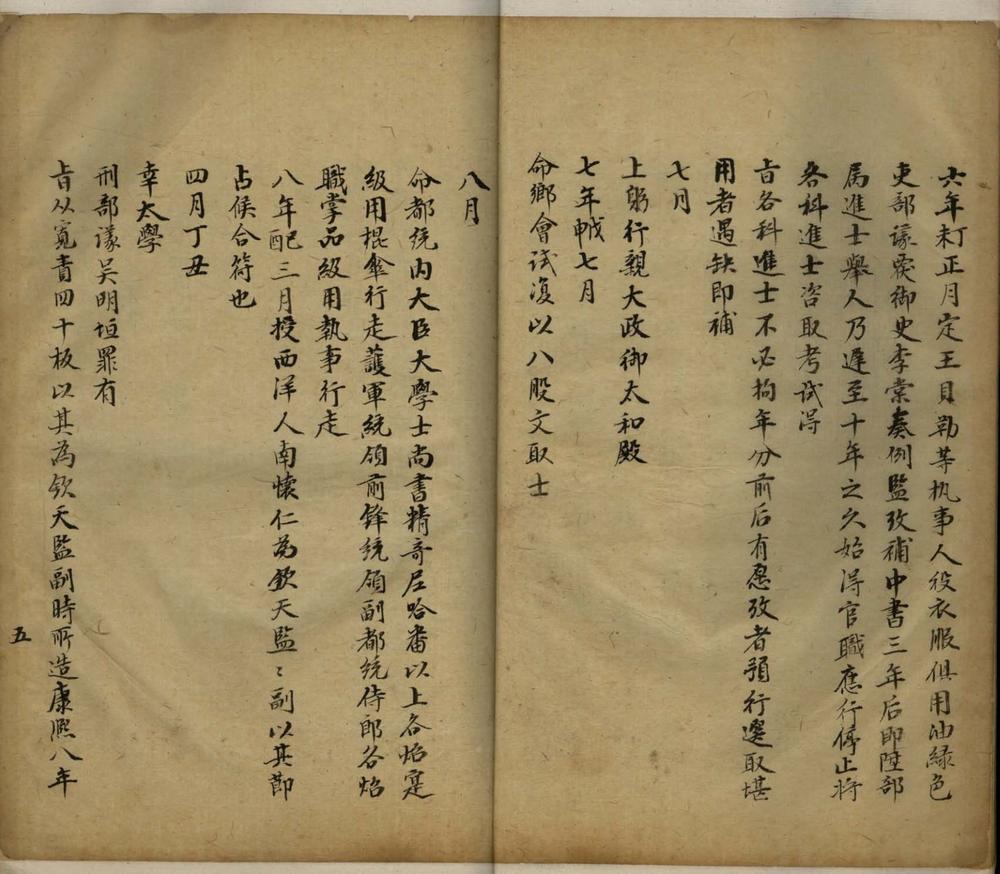 六年丁未正月定王貝勒等执事人役衣服俱用油緑色
吏部議覆御史李棠奏例監攷補中書三年后即陞部
属進士舉人乃遲至十年之久始得官職應行停止将
各科進士咨取考試得
旨各科進士不必拘年分前后有愿攷者預行選取堪
用者遇缺即補
七月
上躬行親大政御太和殿
七年戊申七月
命鄉會试復以八股文取士
八月
命都统内大臣大學士尚書精奇尼哈畨以上各炤寔
級用棍傘行走護軍統領前鋒統領副都統侍郎各炤
職掌品級用執事行走
八年己酉三月授西洋人南懷仁為欽天監〻副以其節
占候合符也
四月丁丑
幸太學
刑部議吴明垣罪有
旨从寬責四十板以其為钦天監副時所造康熙八年
五